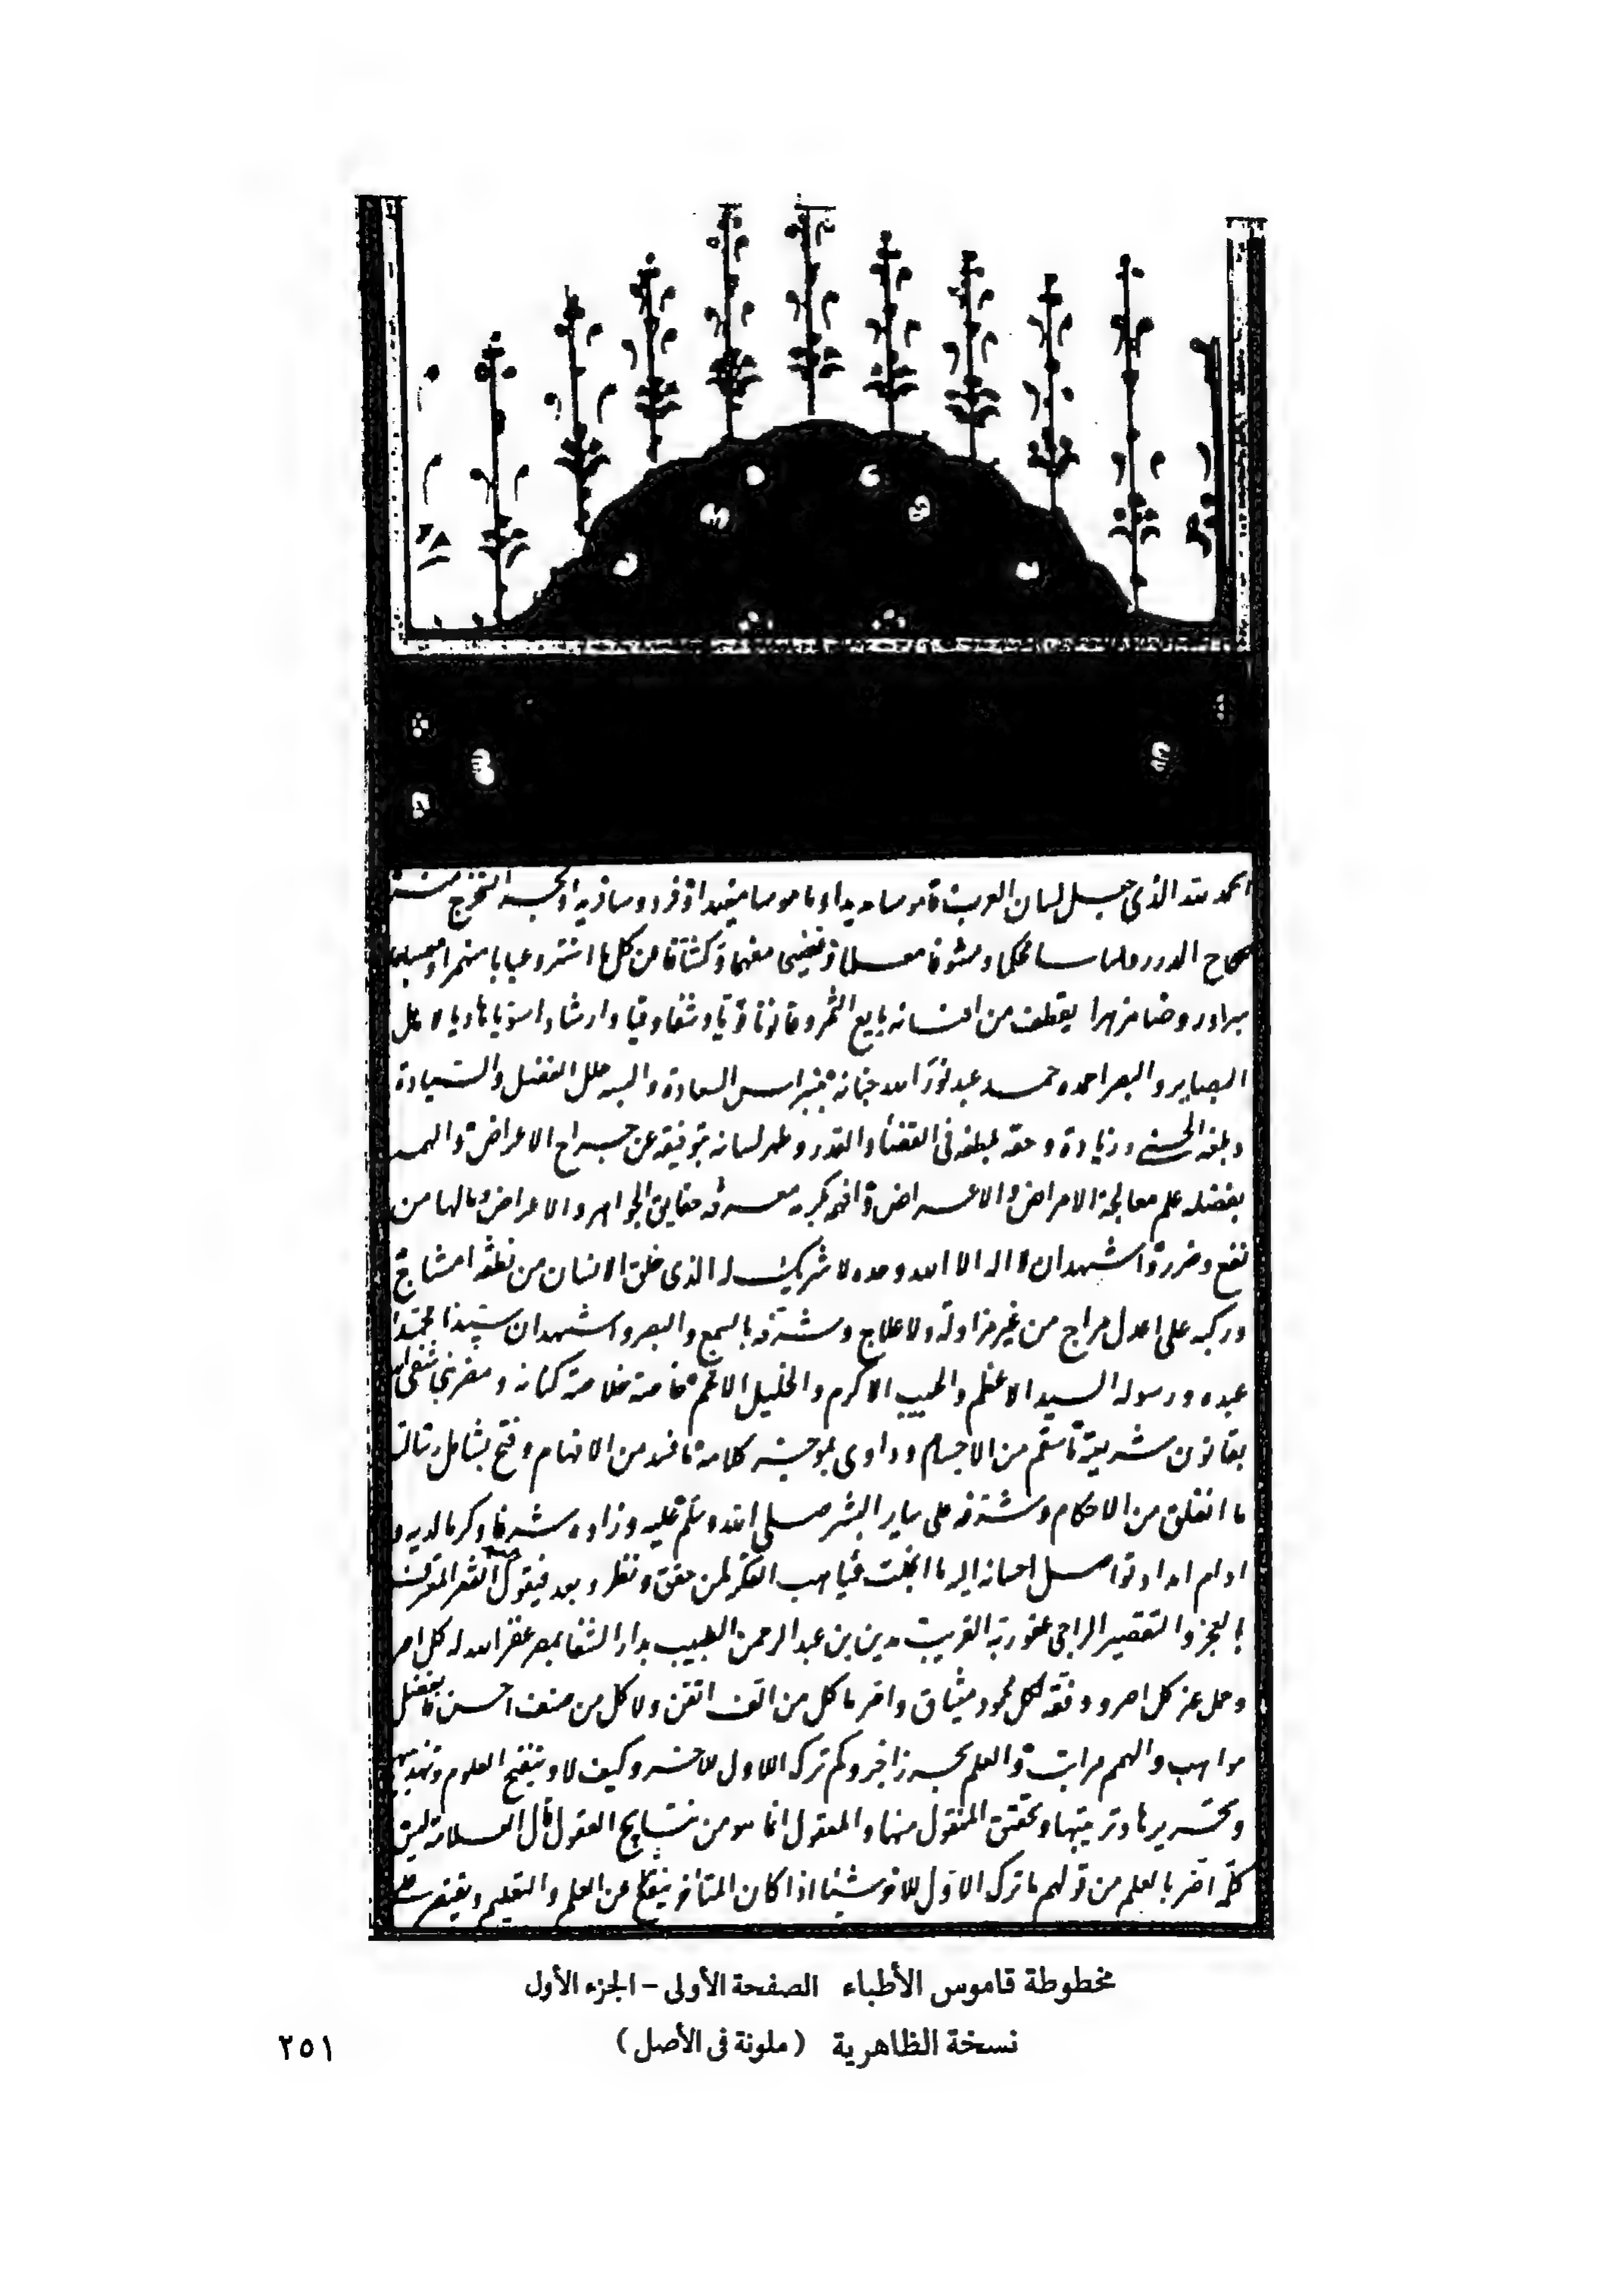 الحمد لله الذي جعل لسان العرب قاموسا مديدا وناموسا مفيدا وفردوسا نزيها وبحرا تستخرج منه
صحاح الدرر ولباسا محكما ومشوفا معلما وفصيحا مفهما وكشافا عن كل ما استتر وعبابا منهمرا ومصباحا
مبرا وروضا مزهرا يقطف من افنانه يانيع الثمر وقانونا قويا وشفا وفيا وارشادا سويا هاديا لا
البصاير والبصر احمده حمد عبد نور الله جنانه بنبراس السعادة والبسه حلل الفضل والسيادة
وبلغه الحسنى وزيادة وحفه بلطفه في القضاء والقدر وطهر لسانه بتوفيقه عن جراح الاعراض والهمه
بفضله علم معالجة الامراض والاعراض وافهمه بكرمه معرفة حقايق الجواهر والاعراض ومالها من
نفع وضرر واشهد ان لا اله الا الله وحده لا شريك له الذي خلق الانسان من نطفة امشاج
وركبه على اعدل مزاج من غير مزاولة ولا علاج وشرفه بالسمع والبصر واشهد ان سيدنا محمدا
عبده ورسوله السيد الاعظم والحبيب الاكرم والخليل الافخم خاصة خلاصة كنانه ومضر نبي شفى الله
بقانون شريعته ما سقم من الاجسام وداوى بموجز كلامه ما فسد من الافهام وفتح بشامل رسالته
ما انغلق من الاحكام وشرفه على ساير البشر صلى الله وسلم عليه وزاده شرفا وكرما لديه و
ادام امداد تواصل احسانه اليه ما انجلت غياهب الفكر لمن حقق ونظر وبعد فيقول العبد الفقير المعترف
بالعجز والتقصير الراجي عفو ربه القريب مدين بن عبد الرحمن الطبيب بدار الشفا بمصر غفر الله له كل اصر
وحل عنه كل اصر ووفقه لكل محمود ميثاق واصر ما كل من الف اتقن ولا كل من صنف احسن فالفضل
مواهب والهمم مراتب والعلم بحر زاخر وكم ترك الاول للاخر وكيف لا وتنقيح العلوم وتهذيبها
وتحريرها وترتيبها وتحقيق المنقول منها والمعقول انما هو من نتايج العقول قال العلامة ليس
كلمة اضر بالعلم من قولهم ما ترك الاول للاخر شيئا اذا كان المتاخر ينقطع عن العلم والتعليم ويقتصر على
مخطوطة قاموس الأطباء الصفحة الأولى – الجزء الأول
نسخة الظاهرية (ملونة في الأصل)
٢٥١